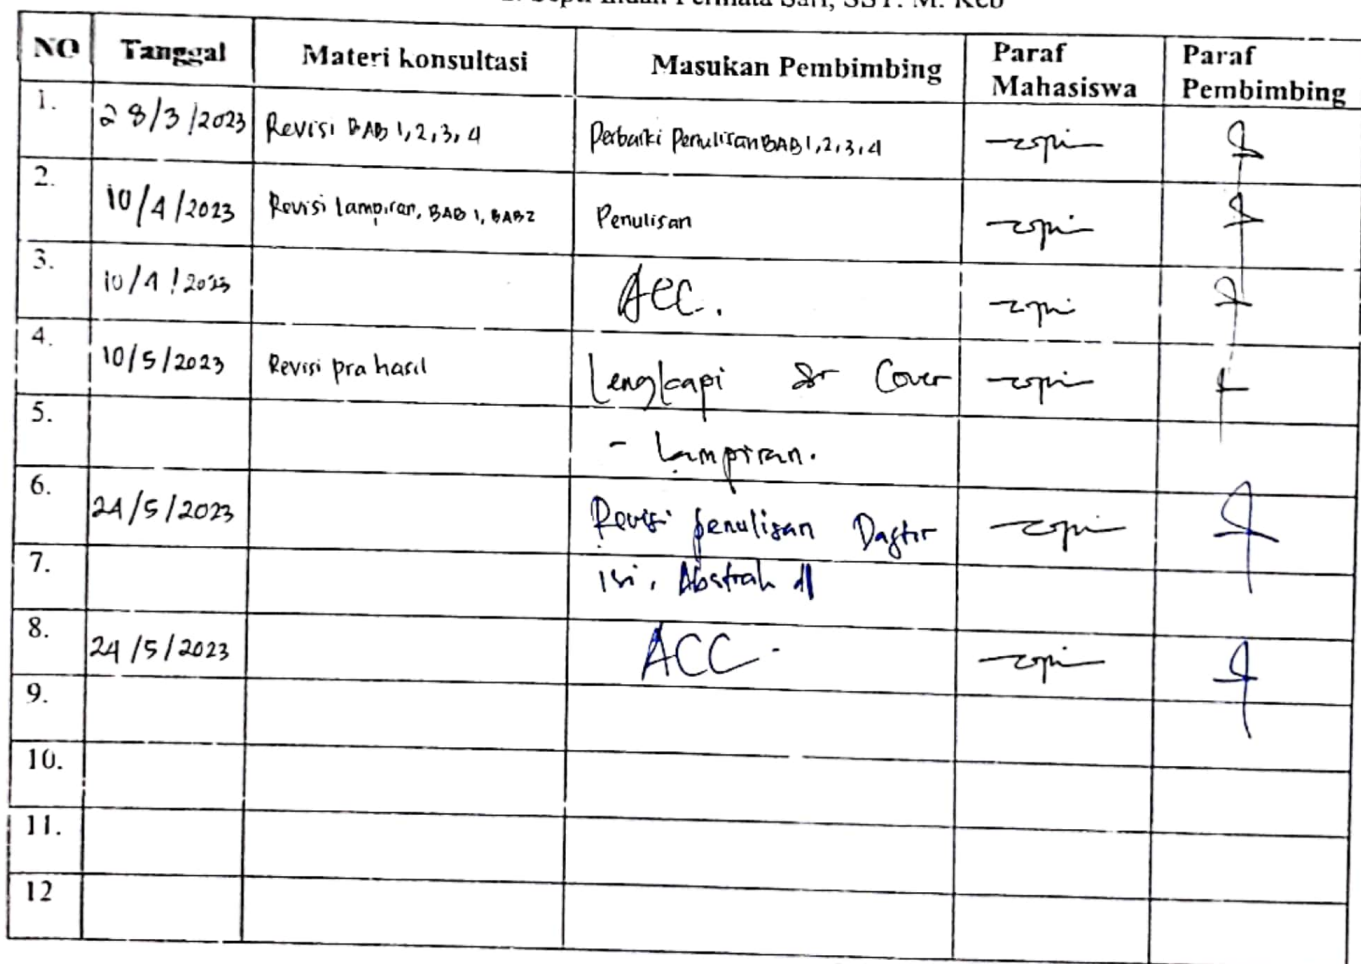 Indah Permata Sari, SST. M. Keb
NO Tanggal Materi konsultasi Masukan Pembimbing Paraf Mahasiswa Paraf Pembimbing
1. 28/3/2023 Revisi BAB 1, 2, 3, 4 Perbaiki Penulisan BAB 1, 2, 3, 4
2. 10/4/2023 Revisi lampiran, BAB 1, BAB 2 Penulisan
3. 10/4/2023 ACC.
4. 10/5/2023 Revisi pra hasil Lengkapi Cover
5. - Lampiran.
6. 24/5/2023 Revisi penulisan Daftar
7. isi, Abstrak dll
8. 24/5/2023 ACC.
9.
10.
11.
12